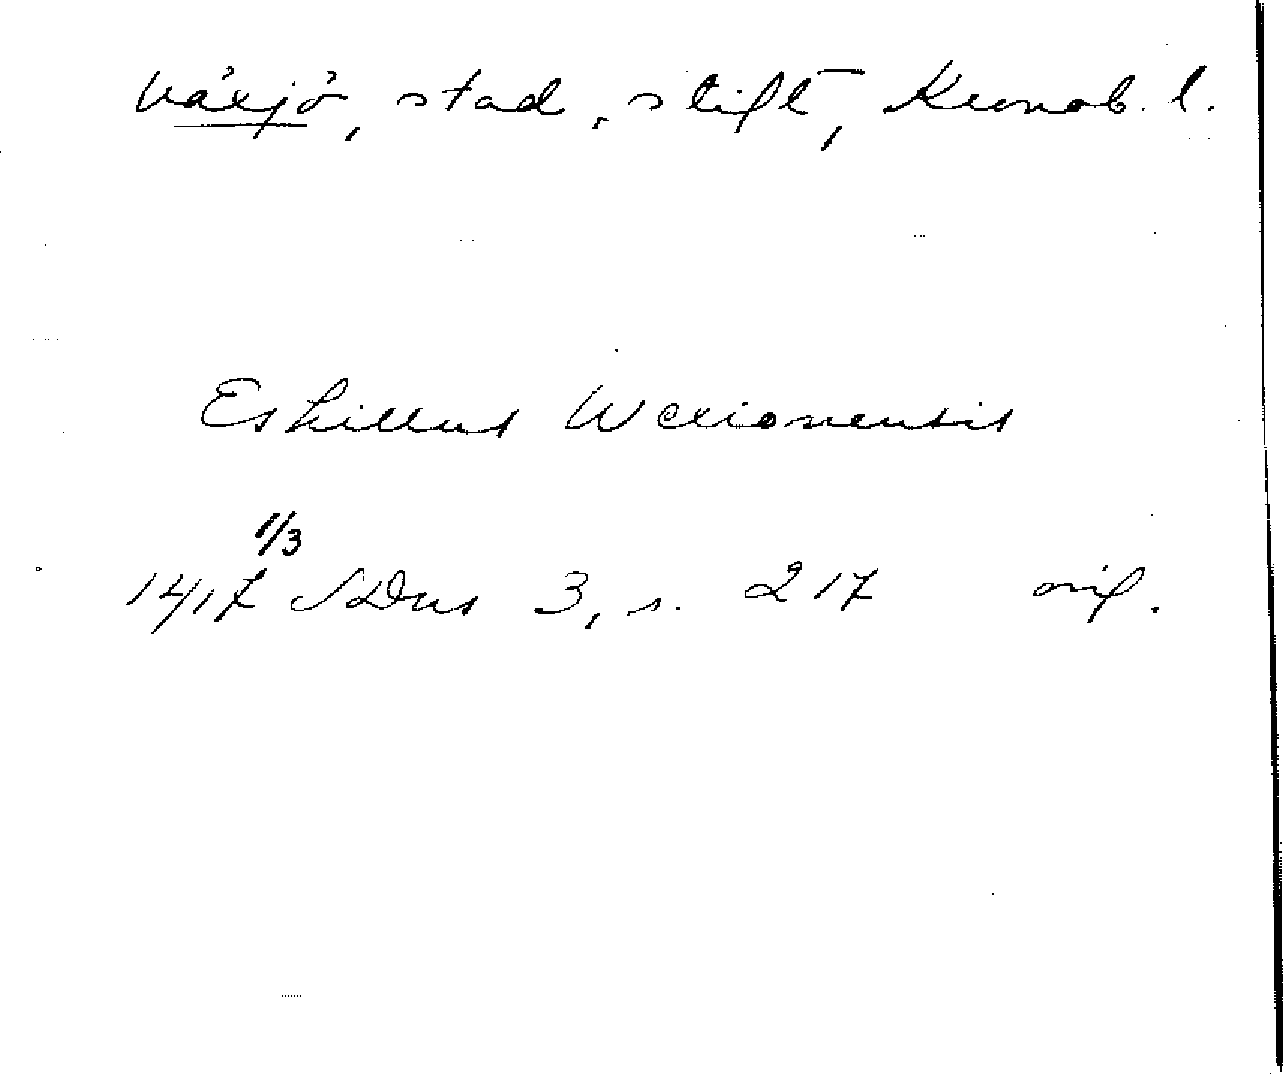 Växjö, stad, stift, Kronob. l.
Eskillus Wexionensis
1/3
1417 SDns 3, s. 217 orig.